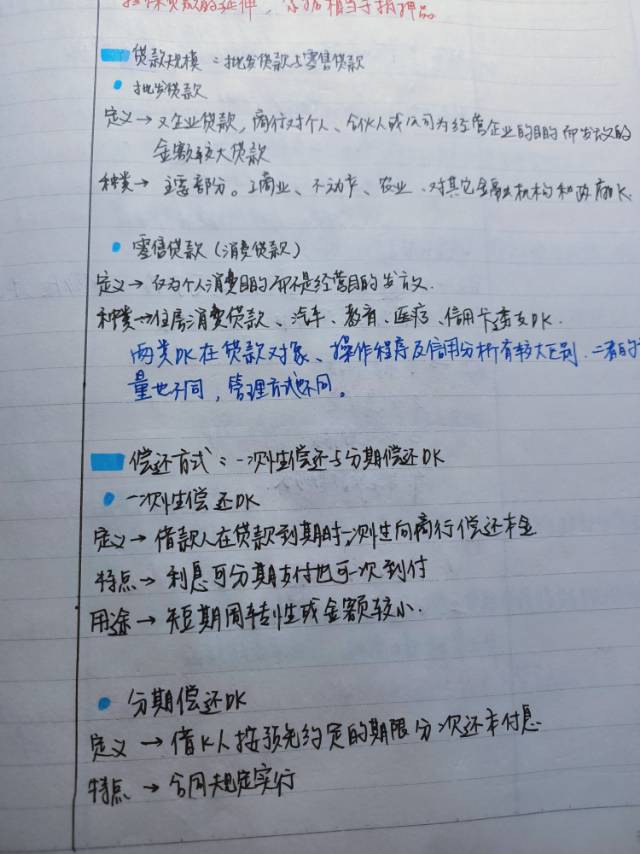 款的延伸，
贷款规模：批发贷款与零售贷款
批发贷款
定义→又企业贷款，商行对个人、合伙人或公司为经营企业的目的而发放的
金额较大贷款
种类→主要部分。工商业、不动产、农业、对其它金融机构和政府K
零售贷款（消费贷款）
定义→仅为个人消费目的而不是经营目的发放.
种类→住房消费贷款、汽车、教育、医疗、信用卡透支DK.
两类DK在贷款对象、操作程序及信用分析有较大区别.二者的
量也不同，管理方式也不同。
偿还方式：一次性偿还与分期偿还DK
一次性偿还DK
定义→借款人在贷款到期时一次性向商行偿还本金
特点→利息可分期支付也可一次到付
用途→短期周转性或金额较小.
分期偿还DK
定义→借K人按预先约定的期限分次还本付息
特点→合同规定实行